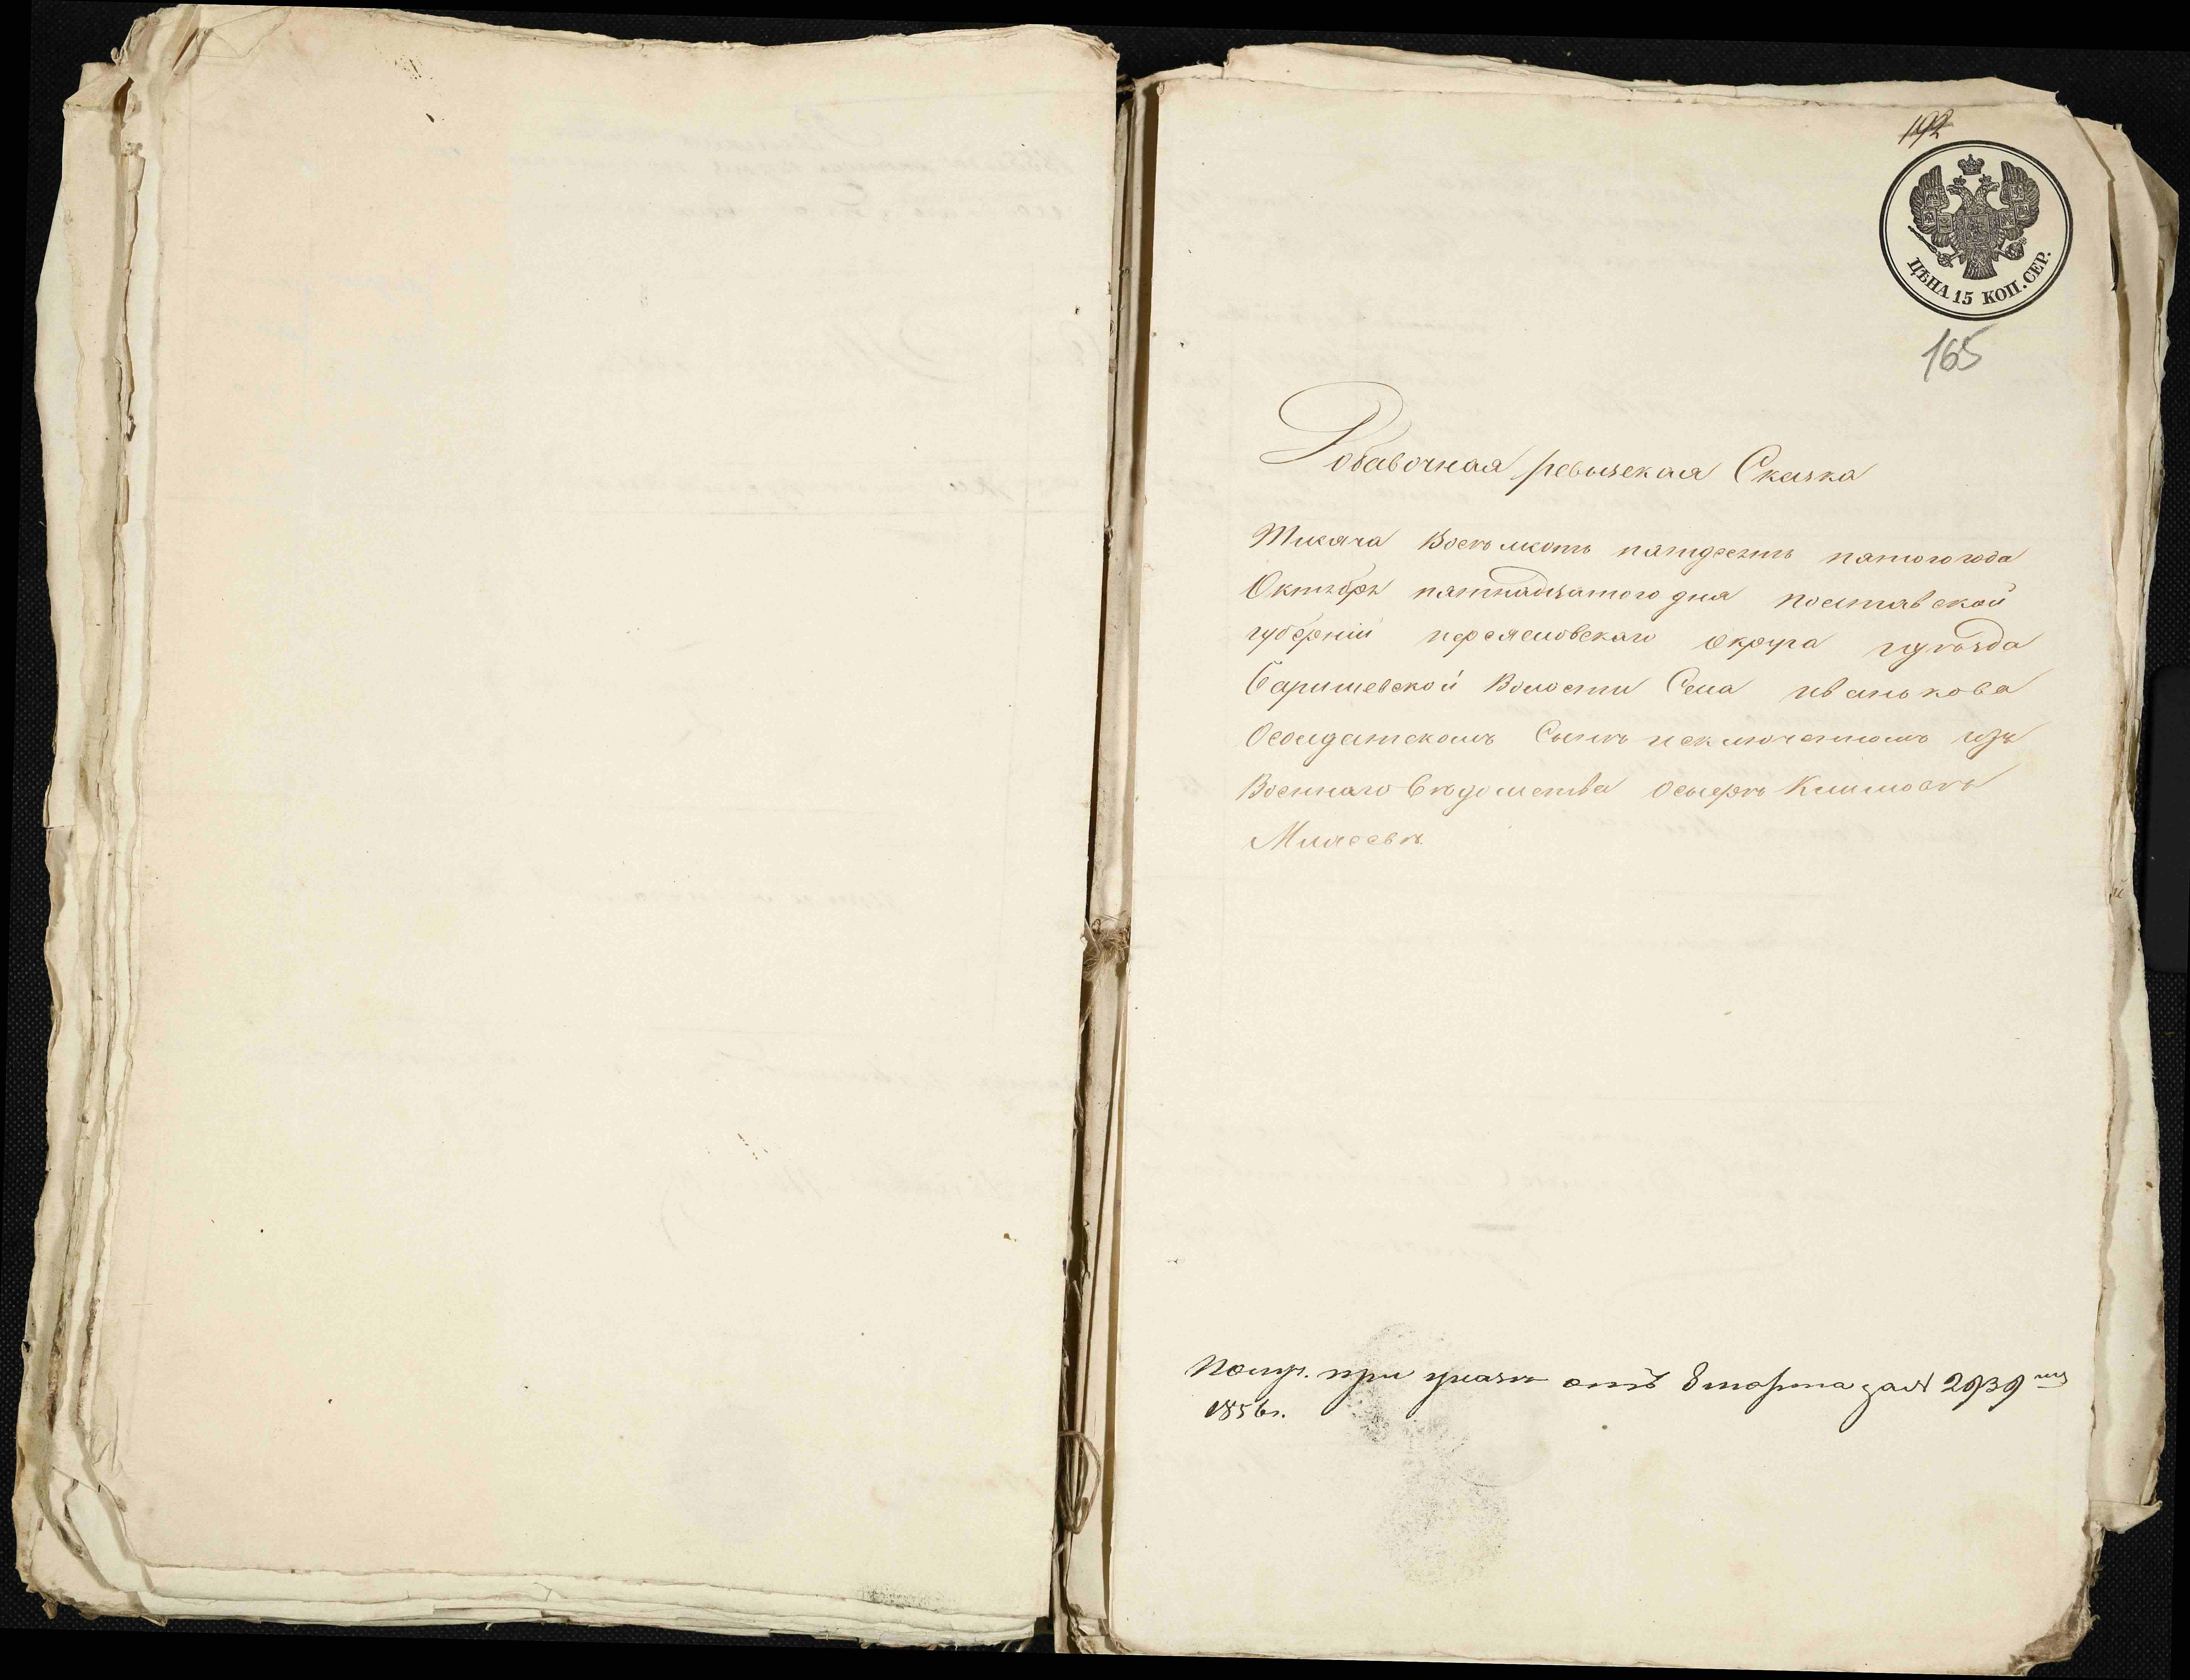 192
ЦѢНА 15 КОП. СЕР.
165
Добавочная ревизская Сказка
Тисяча Восемьсотъ пятдесятъ пятого года
Октября пятнадцатого дня полтавской
губерніи переясловскаго округа и уѣзда
Баришевской Волости Села иванькова
Осолдатскомъ Сынѣ исключенномъ изъ
Военнаго Вѣдомства Осыфѣ Климовѣ
при указѣ отъ 8 марта за № 2939
1856 г.